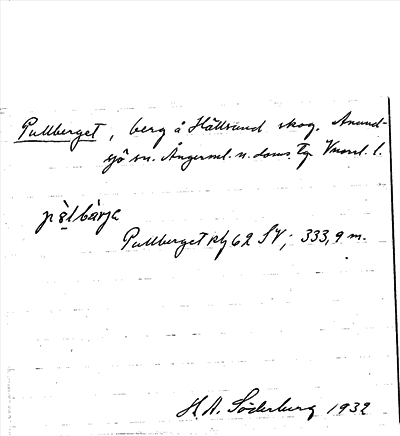 Pullberget, berg å Hällsund skog. Anund-
sjö sn. Ångerml. n. doms. Tg Vnorrl. l.
pɵ̀lbǽrja
Pullberget Rb 62 SV; 333,9 m.
H. A. Söderberg 1932